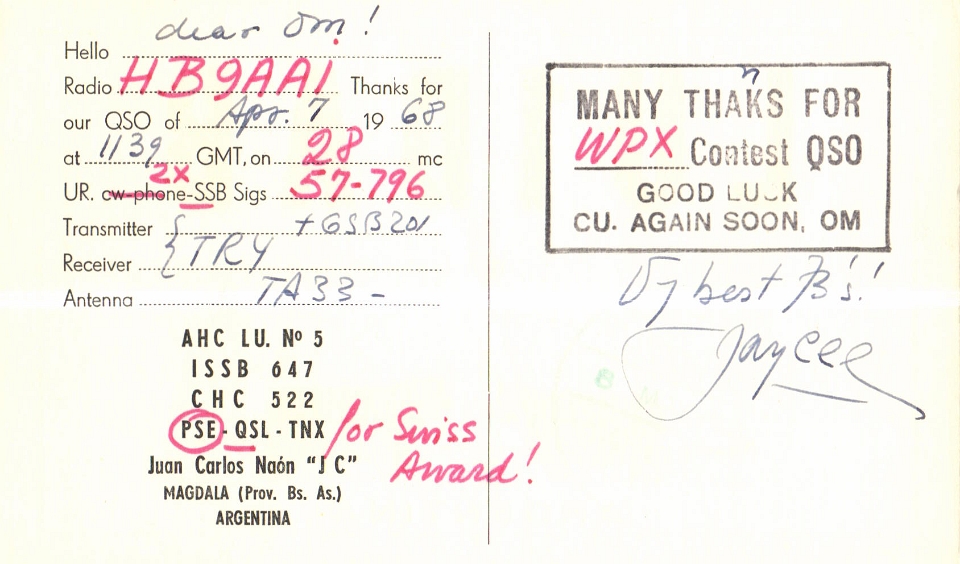 Hello dear Om!
Radio HB9AA1 Thanks for
our QSO of Apr. 7 1968
at 1139 GMT, on 28 mc
2x
UR. cw-phone-SSB Sigs 57-796
Transmitter + GSB201
{TRY
Receiver
Antenna TA33 -
AHC LU. Nº 5
ISSB 647
CHC 522
PSE - QSL - TNX for Swiss
Award!
Juan Carlos Naón "J C"
MAGDALA (Prov. Bs. As.)
ARGENTINA
n
MANY THAKS FOR
WPX Contest QSO
GOOD LUCK
CU. AGAIN SOON, OM
Vy best 73's!
Jaycee